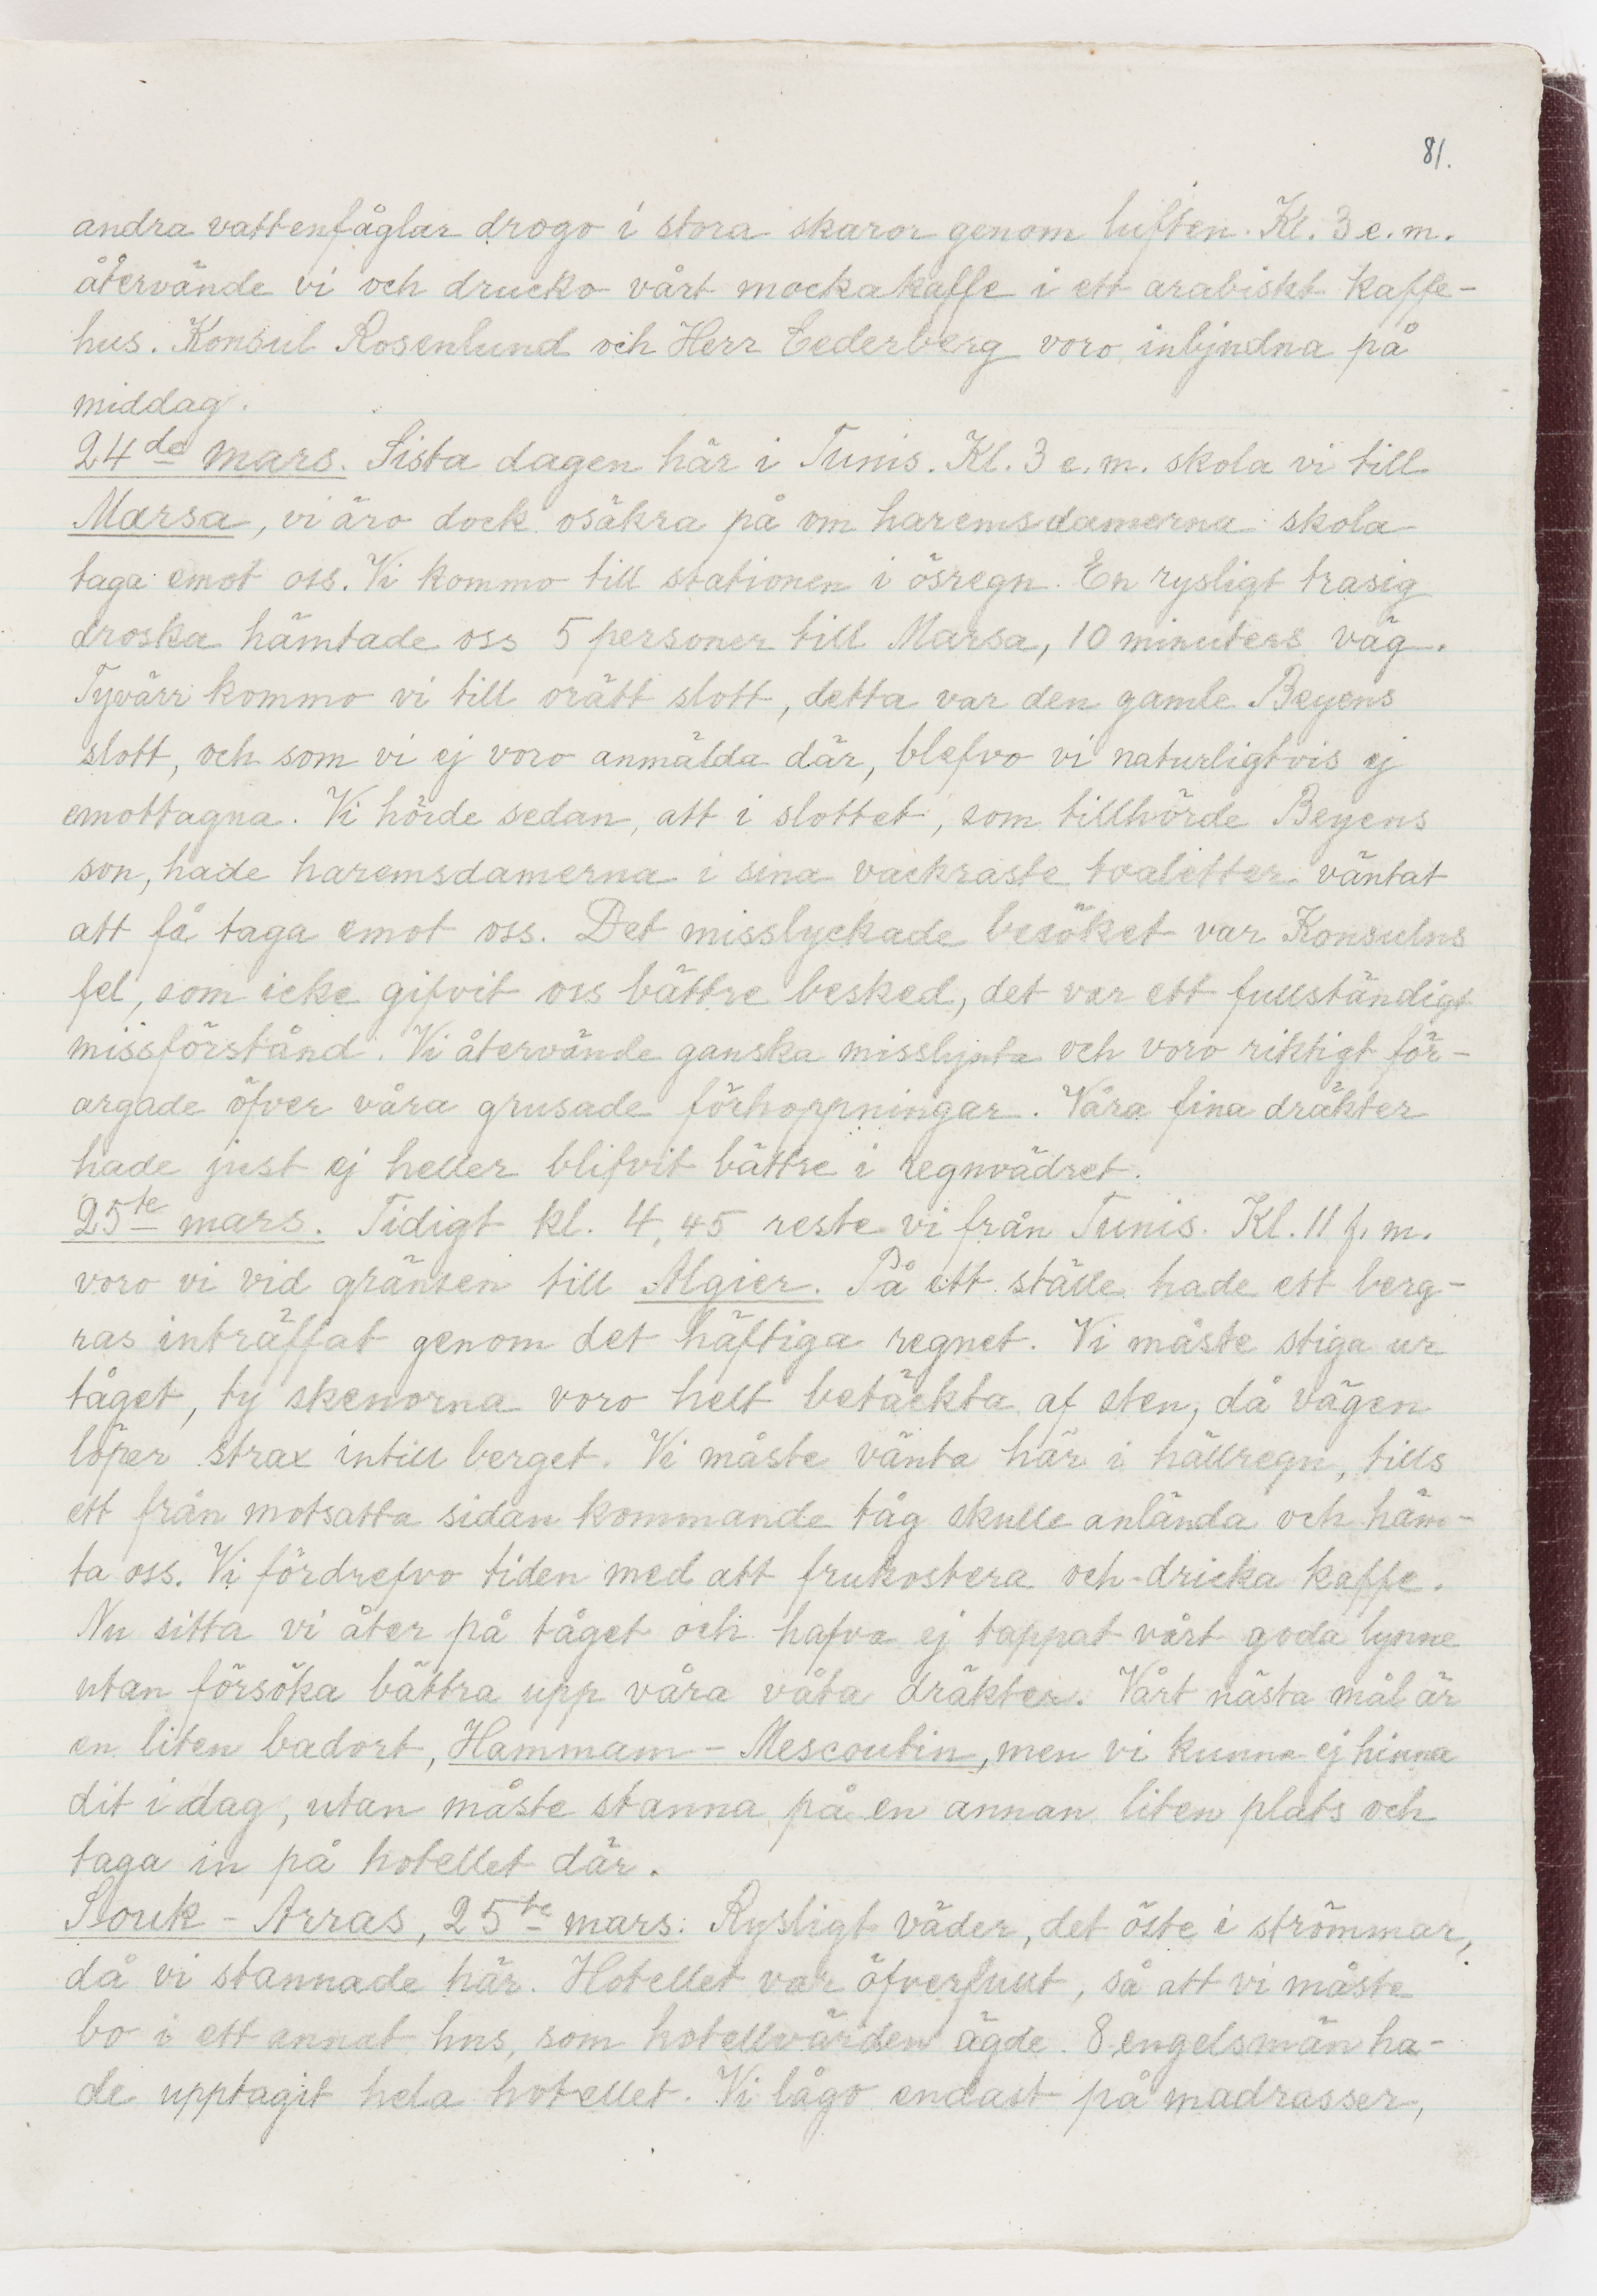 81.
andra vattenfåglar drogo i stora skaror genom luften. Kl. 3 e. m.
återvände vi och drucko vårt mockakaffe i ett arabiskt kaffe-
hus. Konsul Rosenlund och Herr Cederberg voro inbjudna på
middag.
24de mars. Sista dagen här i Tunis. Kl. 3 e. m. skola vi till
Marsa, vi äro dock osäkra på om haremsdamerna skola
taga emot oss. Vi kommo till stationen i ösregn. En rysligt trasig
droska hämtade oss 5 personer till Marsa, 10 minuters väg.
Tyvärr kommo vi till orätt slott, detta var den gamle Beyens
slott, och som vi ej voro anmälda där, blefvo vi naturligtvis ej
emottagna. Vi hörde sedan, att i slottet, som tillhörde Beyens
son, hade haremsdamerna i sina vackraste toaletter väntat
att få taga emot oss. Det misslyckade besöket var Konsulns
fel, som icke gifvit oss bättre besked, det var ett fullständigt
missförstånd. Vi återvände ganska misslynta och voro riktigt för-
argade öfver våra grusade förhoppningar. Våra fina dräkter
hade just ej heller blifvit bättre i regnvädret.
25te mars. Tidigt kl. 4,45 reste vi från Tunis. Kl. 11 f. m.
voro vi vid gränsen till Algier. På ett ställe hade ett berg-
ras inträffat genom det häftiga regnet. Vi måste stiga ur
tåget, ty skenorna voro helt betäckta af sten, då vägen
löper strax intill berget. Vi måste vänta här i hällregn, tills
ett från motsatta sidan kommande tåg skulle anlända och häm-
ta oss. Vi fördrefvo tiden med att frukostera och dricka kaffe.
Nu sitta vi åter på tåget och hafva ej tappat vårt goda lynne
utan försöka bättra upp våra våta dräkter. Vårt nästa mål är
en liten badort, Hammam - Mescoutin, men vi kunna ej hinna
dit i dag, utan måste stanna på en annan liten plats och
taga in på hotellet där.
Souk - Arras, 25te mars. Rysligt väder, det öste i strömmar,
då vi stannade här. Hotellet var öfverfullt, så att vi måste
bo i ett annat hus, som hotellvärden ägde. 8 engelsmän ha-
de upptagit hela hotellet. Vi lågo endast på madrasser,